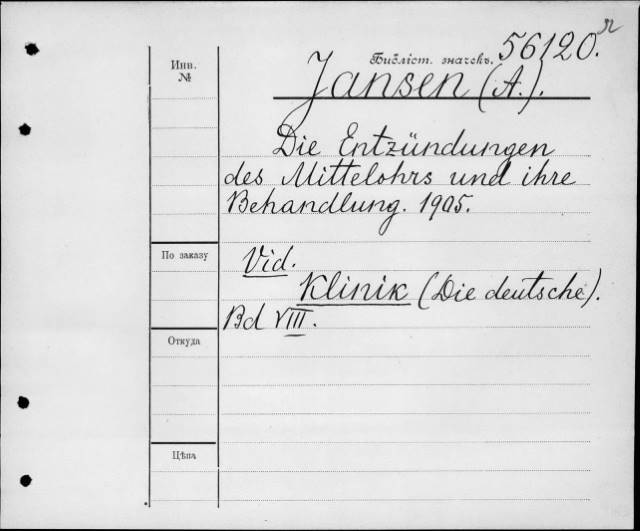 Инв. №
Библіот. значекъ. 56120.
Jansen (A.).
Die Entzündungen
des Mittelohrs und ihre
Behandlung. 1905.
По заказу
Vid.
Klinik (Die deutsche).
Bd VIII.
Откуда
Цѣна